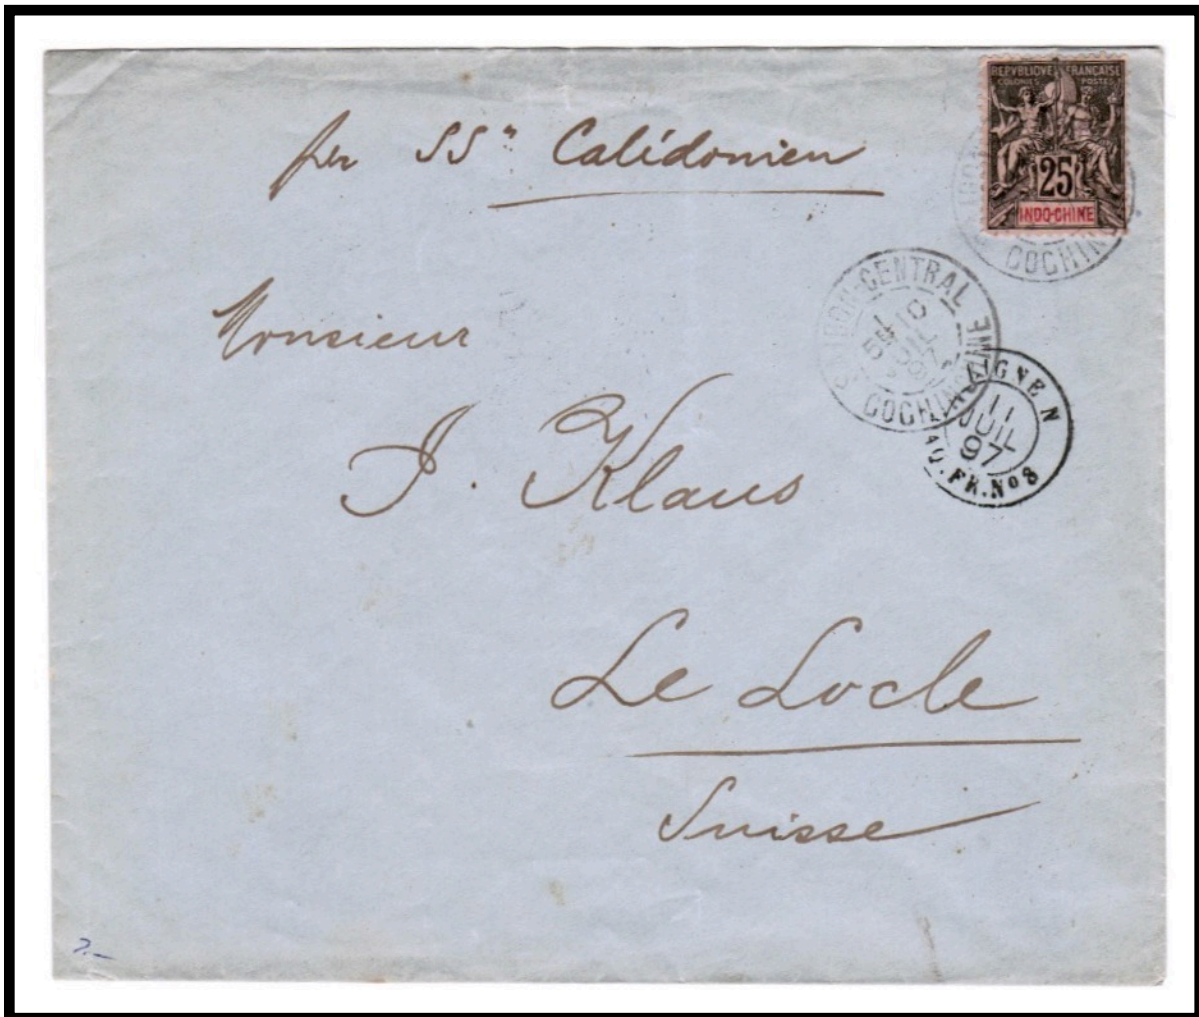 per SSr Calédonien
REPVBLIQVE FRANÇAISE
COLONIES POSTES
25
INDO-CHINE
COCHIN
SAIGON-CENTRAL
10
JUIL
97
COCHINCHINE
Monsieur
LIGNE N
11
JUIL
97
PAQ. FR. No 8
J. Klaus
Le Locle
Suisse